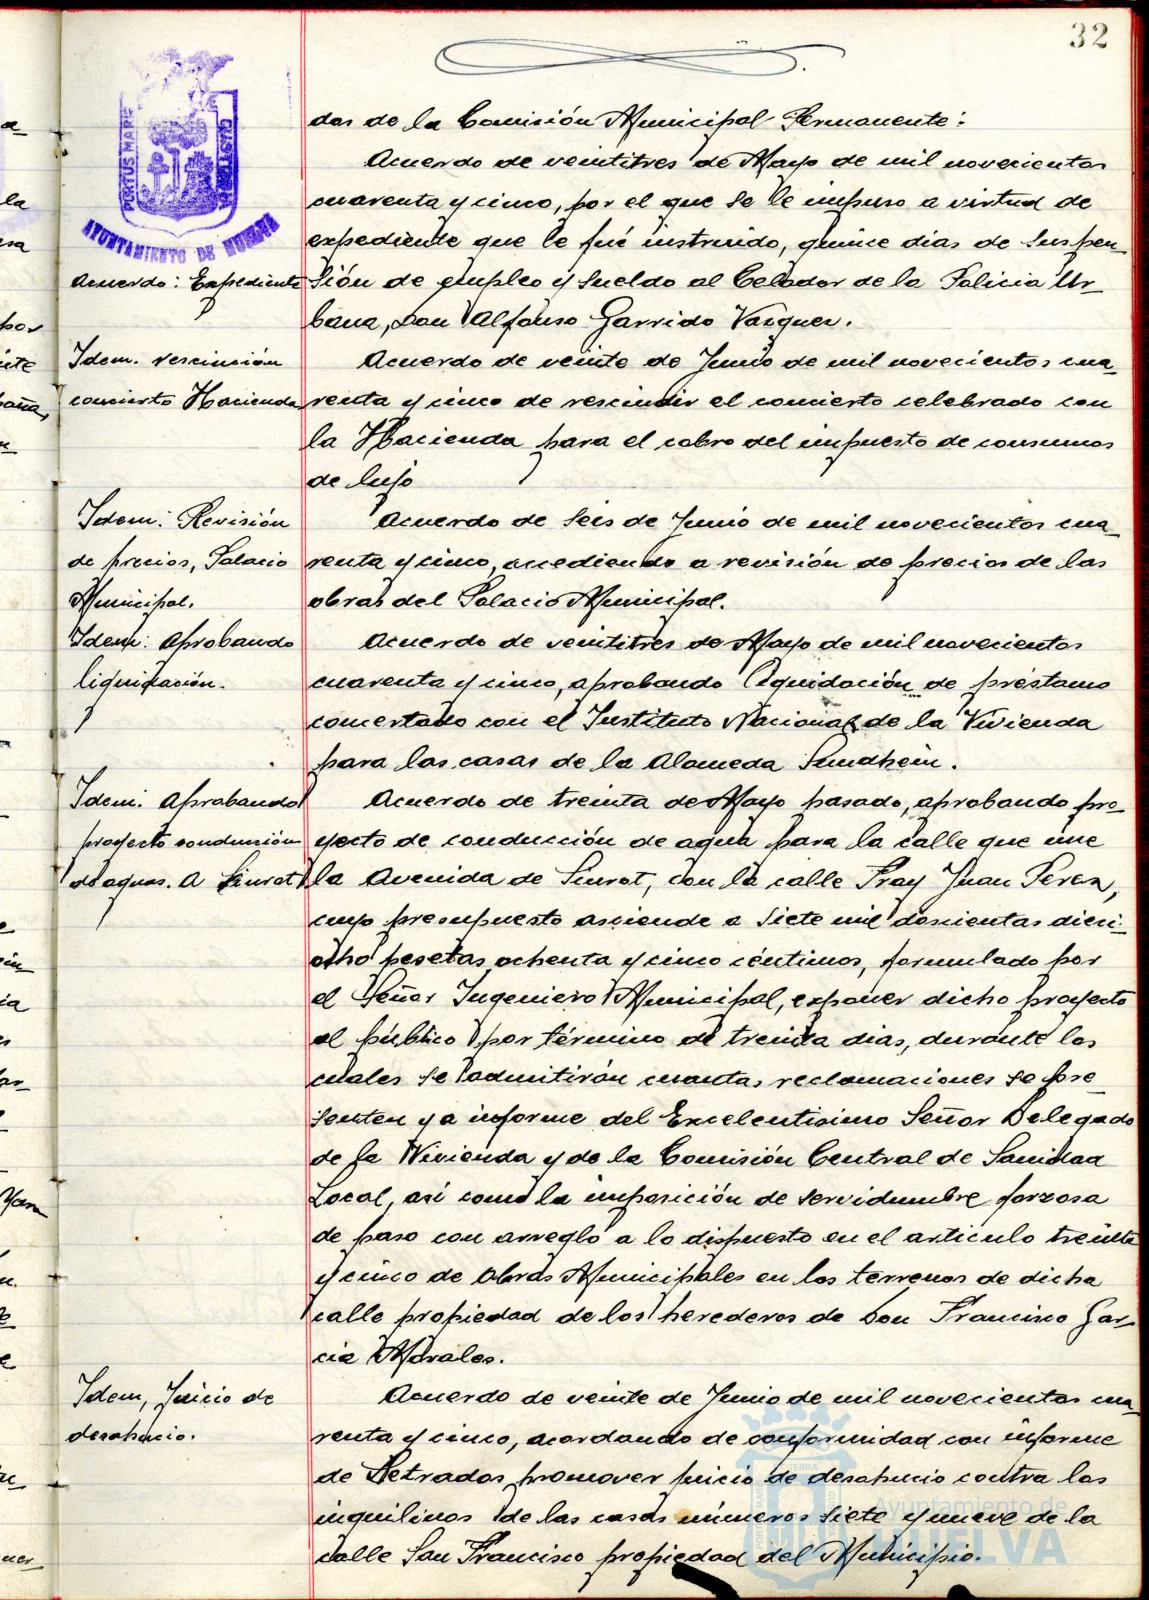 32
PORTUS MARIS
CUSTODIA
AYUNTAMIENTO DE HUELVA
dos de la Comisión Municipal Permanente:
Acuerdo de veintitres de Mayo de mil novecientos
cuarenta y cinco, por el que se le impuso a virtud de
expediente que le fué instruido, quince dias de suspen-
Acuerdo: Expediente
sión de empleo y sueldo al Celador de la Policia Ur-
bana, Don Alfonso Garrido Vazquez.
Idem. rescinsión
Acuerdo de veinte de Junio de mil novecientos cua-
concierto Hacienda
renta y cinco de rescindir el concierto celebrado con
la Hacienda para el cobro del impuesto de consumos
de lujo
Idem: Revisión
Acuerdo de seis de Junio de mil novecientos cua-
de precios, Palacio
renta y cinco, accediendo a revisión de precios de las
Municipal.
obras del Palacio Municipal.
Idem: Aprobando
Acuerdo de veintitres de Mayo de mil novecientos
liquidación.
cuarenta y cinco, aprobando liquidación de préstamo
concertado con el Instituto Nacional de la Vivienda
para las casas de la Alameda Sundhein.
Idem. Aprobando
Acuerdo de treinta de Mayo pasado, aprobando pro-
proyecto conducción
yecto de conducción de agua para la calle que une
de aguas. A Siurot
la Avenida de Siurot, con la calle Fray Juan Perez,
cuyo presupuesto asciende a siete mil doscientas dieci-
ocho pesetas ochenta y cinco céntimos, formulado por
el Señor Ingeniero Municipal, exponer dicho proyecto
al público por término de treinta dias, durante los
cuales se admitirán cuantas reclamaciones se pre-
senten y a informe del Excelentisimo Señor Delegado
de la Vivienda y de la Comisión Central de Sanidad
Local, asi como la imposición de servidumbre forzosa
de paso con arreglo a lo dispuesto en el articulo treinta
y cinco de Obras Municipales en los terrenos de dicha
calle propiedad de los herederos de Don Francisco Gar-
cia Morales.
Idem, Juicio de
Acuerdo de veinte de Junio de mil novecientos cua-
desahucio.
renta y cinco, acordando de conformidad con informe
de Letrados promover juicio de desahucio contra los
inquilinos de las casas números siete y nueve de la
calle San Francisco propiedad del Municipio.
Ayuntamiento de
HUELVA